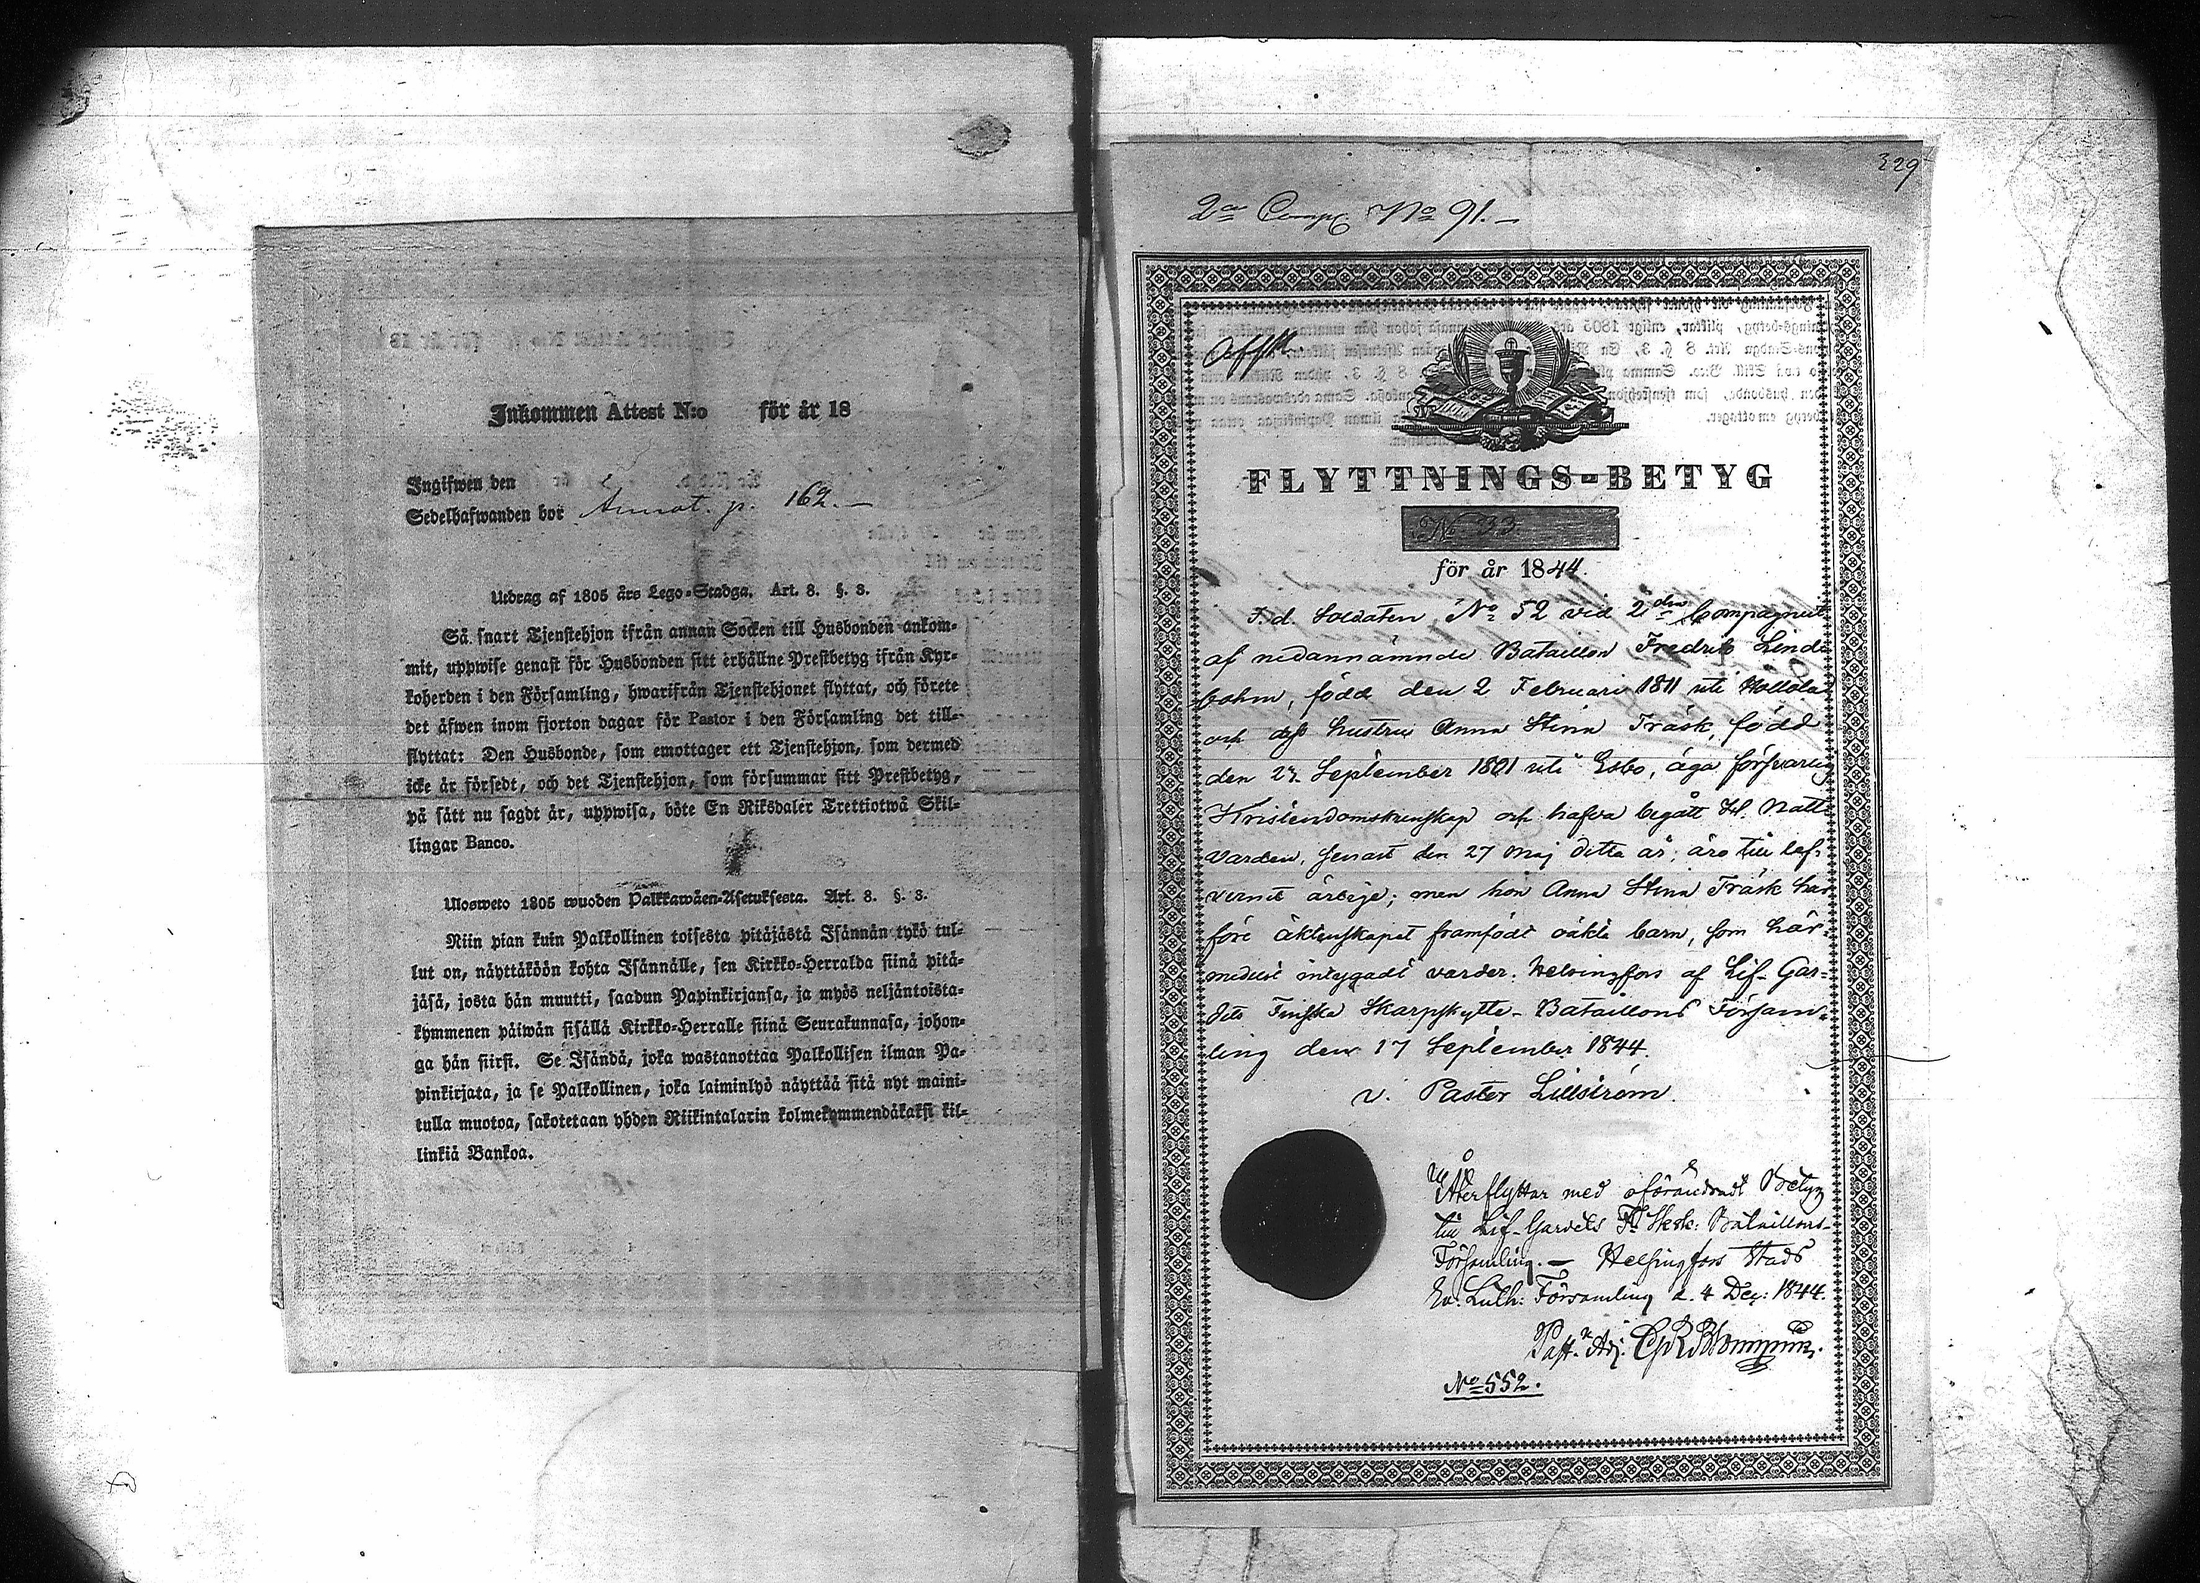 Inkommen Attest N:o för år 18
Ingifwen den
Sedelhafwanden bor Annot. p. 162.—
Utdrag af 1805 års Lego-Stadga. Art. 8. §. 3.
Så snart Tjenstehjon ifrån annan Socken till Husbonden ankom-
mit, uppwise genast för Husbonden sitt erhållne Prestbetyg ifrån Kyr-
koherden i den Församling, hwarifrån Tjenstehjonet flyttat, och förete
det äfwen inom fjorton dagar för Pastor i den Församling det till-
flyttat: Den Husbonde, som emottager ett Tjenstehjon, som dermed
icke är försedt, och det Tjenstehjon, som försummar sitt Prestbetyg,
på sätt nu sagdt är, uppwisa, böte En Riksdaler Trettiotwå Skil-
lingar Banco.
Ulosweto 1805 wuoden Palkkawäen-Asetuksesta. Art. 8. §. 3.
Niin pian kuin Palkollinen toisesta pitäjästä Isännän tykö tul-
lut on, näyttäköön kohta Isännälle, sen Kirkko-Herralda siinä pitä-
jäsä, josta hän muutti, saadun Papinkirjansa, ja myös neljäntoista-
kymmenen päiwän sisällä Kirkko-Herralle siinä Seurakunnasa, johon-
ga hän siirsi. Se Isändä, joka wastanottaa Palkollisen ilman Pa-
pinkirjata, ja se Palkollinen, joka laiminlyö näyttää sitä nyt maini-
tulla muotoa, sakotetaan yhden Riikintalarin kolmekymmendäkaksi kil-
linkiä Bankoa.
329
2:a Comp. No 91.—
FLYTTNINGS-BETYG
No 33
för år 1844.
F. d. Soldaten No 52 vid 2:dra Compagniet
af nedannämnde Bataillon Fredrik Linde
bohm, född den 2 Februari 1811 uti Hollola
och dess hustru Anna Stina Träsk, född
den 27. September 1801 uti Esbo, äga försvarlig
Kristendomskunskap och hafva begått H. Natt-
varden, senast den 27 Maj detta år; äro till lef-
vernet ärlige; men hon Anna Stina Träsk har
före äktenskapet framfödt oäkta barn, som här-
medelst intygadt varder. Helsingfors af Lif-Gar-
dets Finska Skarpskytte-Bataillons Försam-
ling den 17 September 1844.
v. Pastor Lillström.
Återflyttar med oförändradt Betyg
till Lif-Gardets F. Sksk: Bataillons-
Församling.— Helsingfors Stads
Ev. Luth: Församling d. 4 Dec: 1844.
Past. Adj.
No 552.